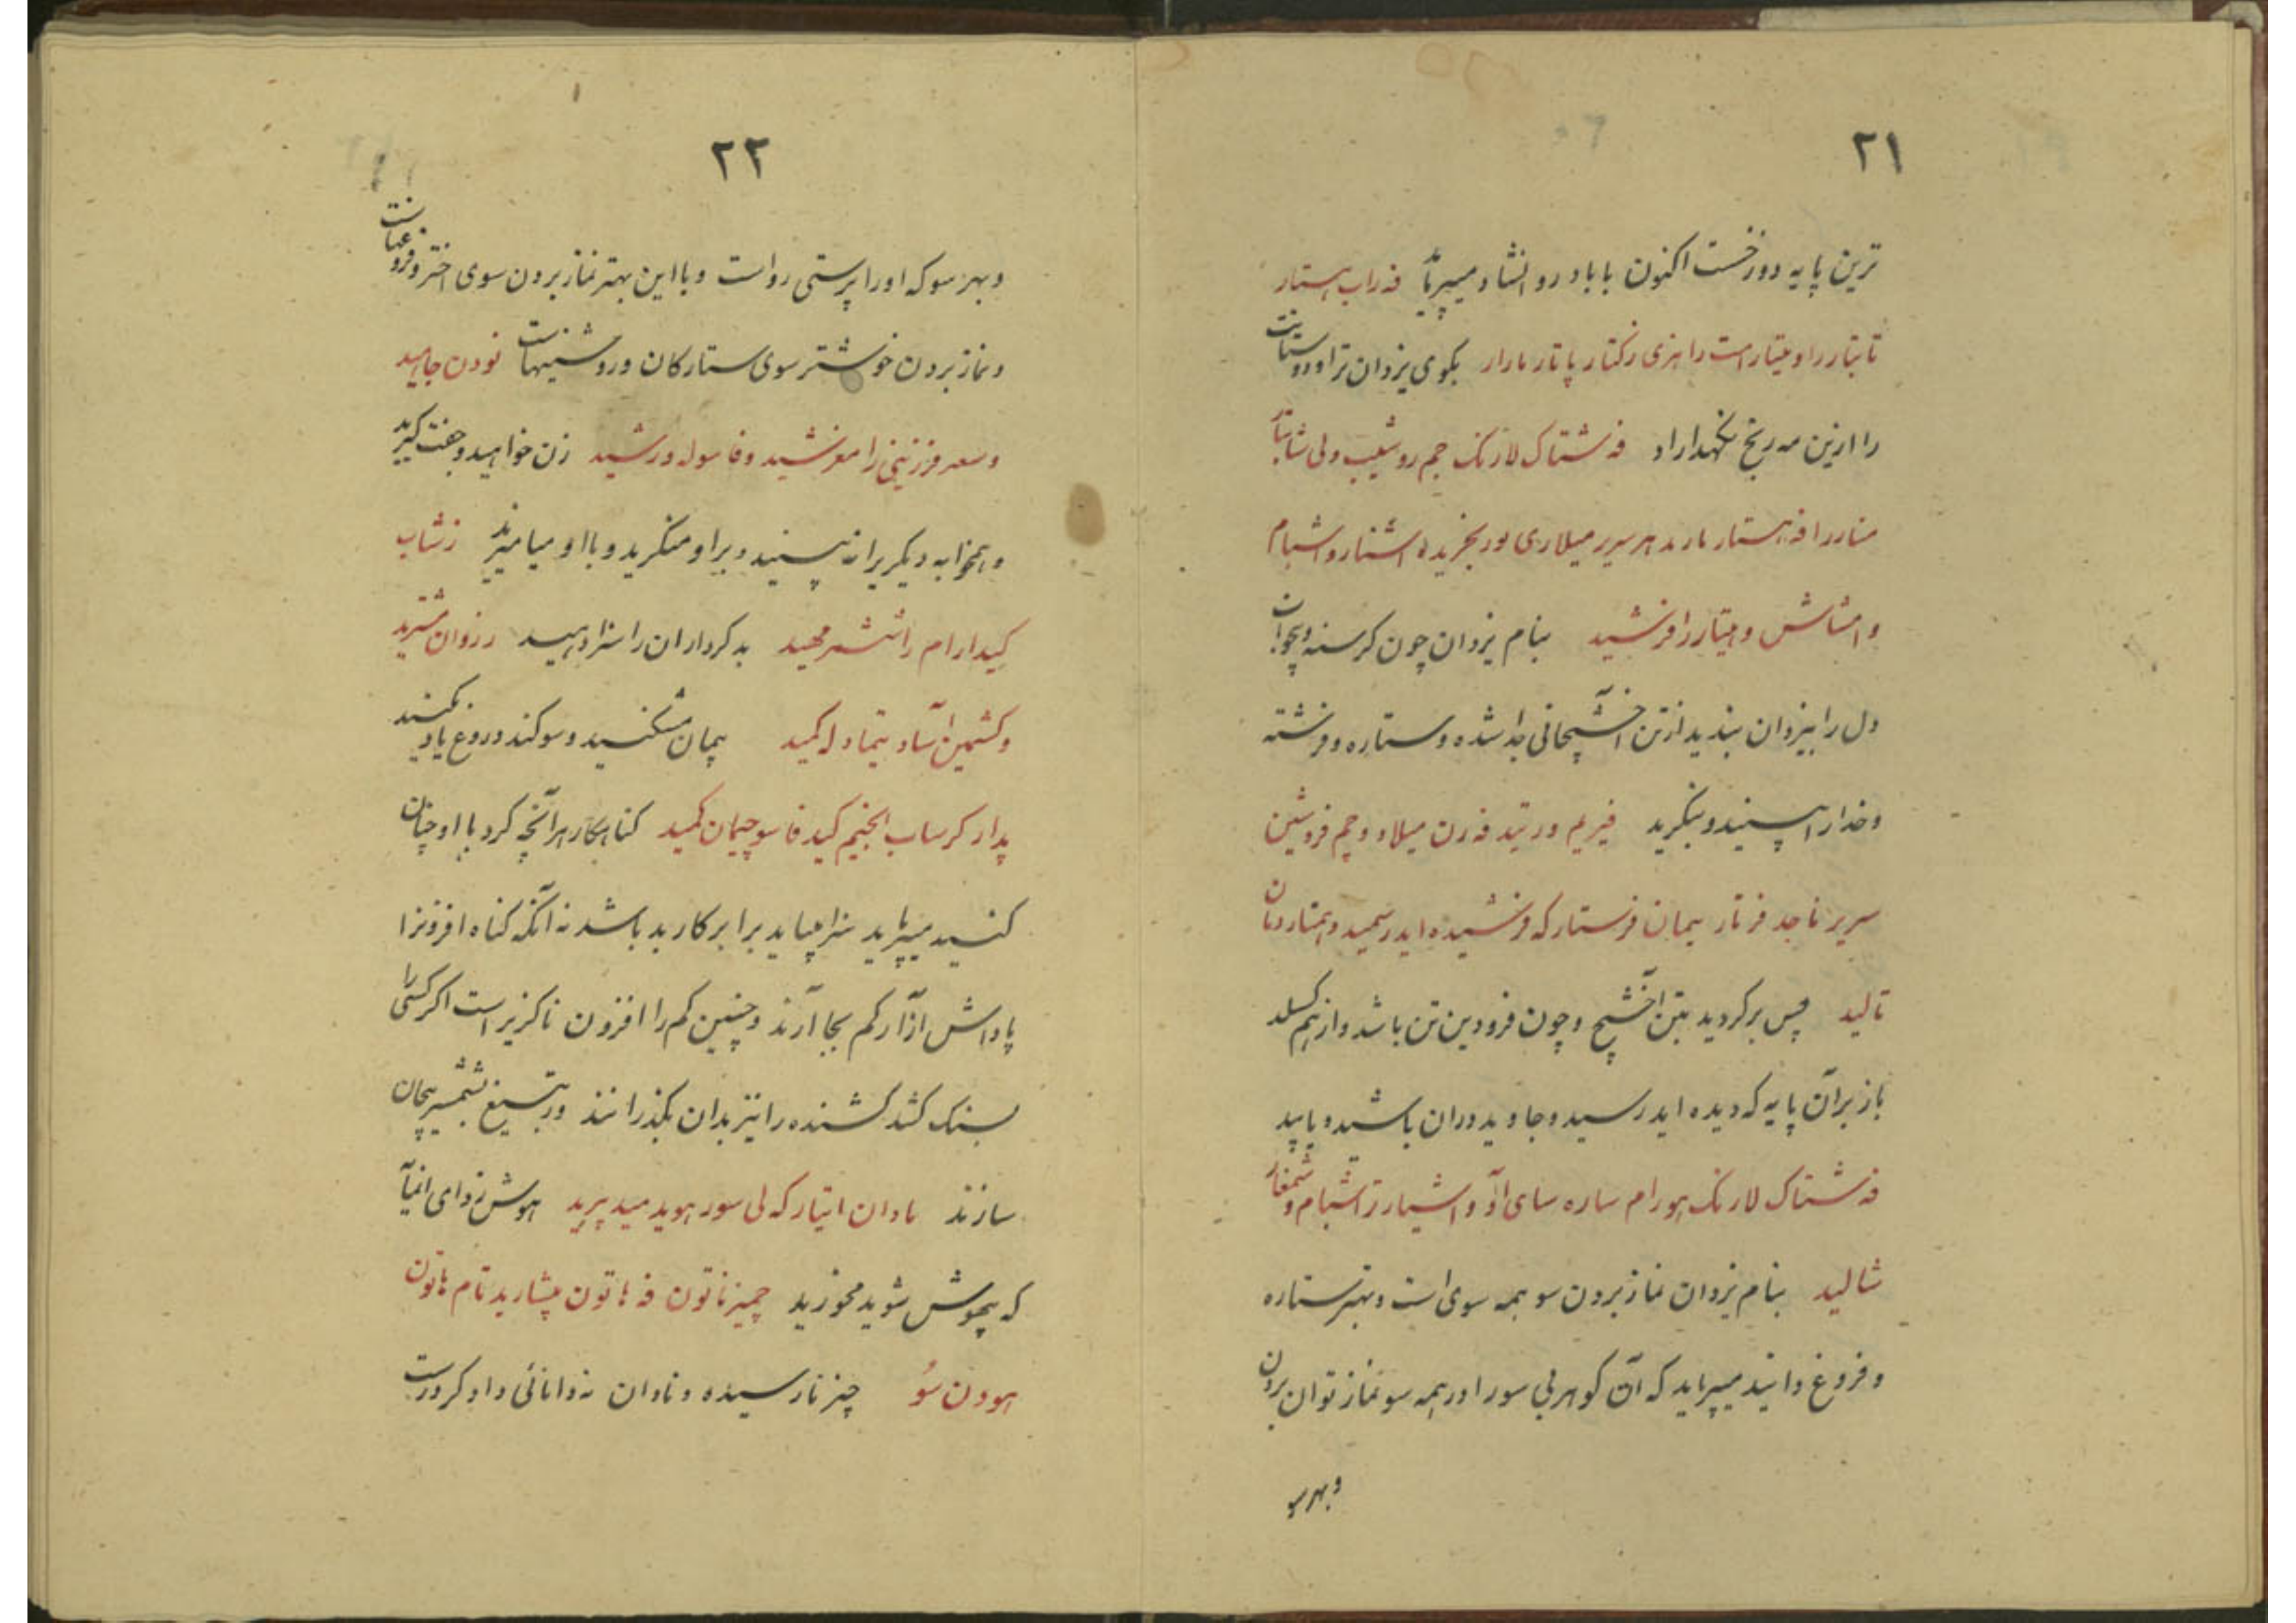 ۲۱
ترین پایه دوزخست اکنون با باد روانشاد میپیرماید فه راب هستار
تا بتار راو متیار است را هزی رکتار پاتار مارار بکوی یزدان ترا و دوستانت
را ازین مه رنج نگهداراد فه شتاک لارنک جم روشیب ولی شابتار
منار را فه هستار مارند هر سریر میلاری لور بخریده اشنار و اشبام
و امشاش و میتار را فرنشید بنام یزدان چون گرسنه و بیخواب
دل را بیزدان بندید از تن آخشیجانی جدا شده و ستاره و فرشته
و خدا را بینید و بنگرید فیریم ورتید فه رن میلاد و چم فرودشین
سریر ناجد فرتار بیمان فرستار که فرنشیده اید رسمید و همتار دمان
تالید پس برگردید بتن آخشیج و چون فرودین تن باشد و از هم گسلد
باز بران پایه که دیده اید رسید و جاوید دران باشید و پایید
فه شتاک لارنک هورام ساره سای آد و اشیار تر اشبام و شمغار
شالید بنام یزدان نماز بردن سو همه سوی است و بهتر ستاره
و فروغ دانید میپیراید که آن گوهر بی سو را در همه سو نماز توان بردن
و بهر سو
۲۲
و بهر سو که اورا پرستی رواست و با این بهتر نماز بردن سوی اختر و فروغهاست
و نماز بردن خوشتر سوی ستارگان و روشنیهاست نودن جامید
و سعر فرزینی را مغرشید و فاسوله ورشید زن خواهید و جفت گیرید
و همخوابه دیگریرا نه بینید و براو منگرید و با او میامیزید زشاب
کیدارام را شمشر مهید بدکرداران را سزا دهید رزوان مشرید
و کشمین آساد یتماد له کمید پیمان مشکنید و سوگند دروغ یاد نکنید
پدار کرساب انجیم کید فا سو چیمان کمید گناهکار هرآنچه کرد با او چنان
کنید میپیراید سزا میباید برابر کار بد باشد نه آنکه گناه افزونرا
پاداش آزار کم بجا آرند و چنین کم را افزون ناگزیر است اگر کسی را
بسنک کشد کشنده را نیز بدان بگذرانند و به تیغ بشمشیر بیجان
سازند مادان انتیار که لی سور هوید مید پرید هوش زدای انمایه
که بیهوش شوید مخورید چمیز ناتون فه ماتون میشارید تام ماتون
هودن سو چیز نارسیده و نادان نه دانائی داد کر درست